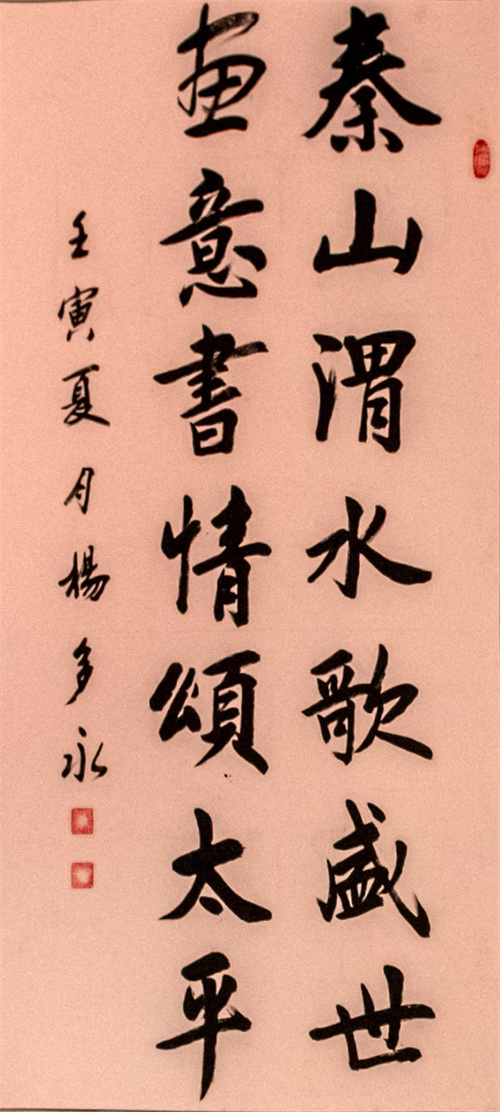 秦山渭水歌盛世
画意書情頌太平
壬寅夏月楊多永